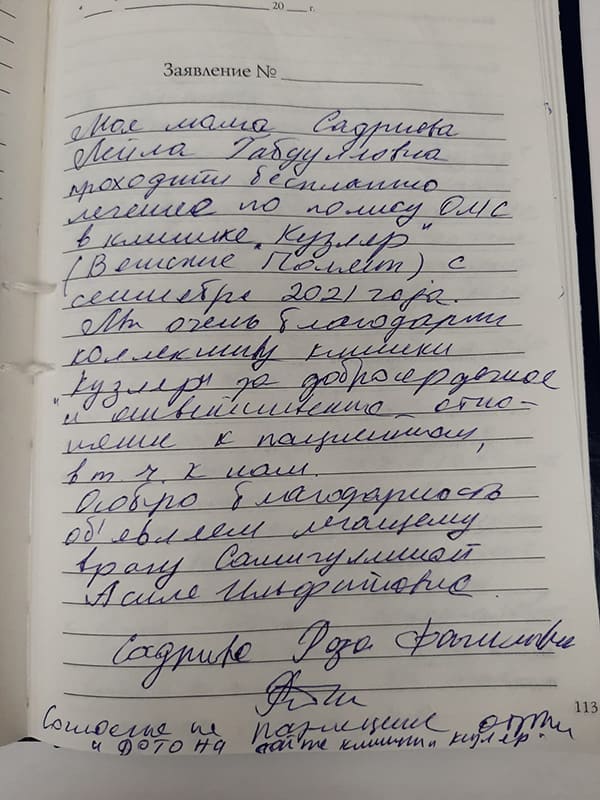 20 г.
Заявление №
Моя мама Садриева
Лейла Габдулловна
проходит бесплатно
лечение по полису ОМС
в клинике „Кузляр"
(Вешские Поляны) с
сентября 2021 года.
Мы очень благодарим
коллектив клиники
„Кузляр" за добросердечное
и отно-
шение к пациентам,
в т. ч. к нам.
Особую благодарность
объявляем лечащему
врачу Самигуллиной
Асиле Ильфатовне.
Садриева Роза
113
Согласие на размещение
и ФОТО НА сайте клиники „Кузляр"